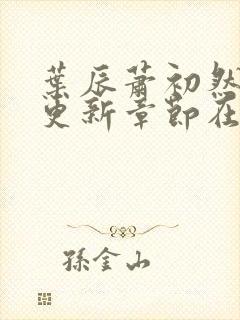 葉辰蕭初然
更新章節在
孫金山